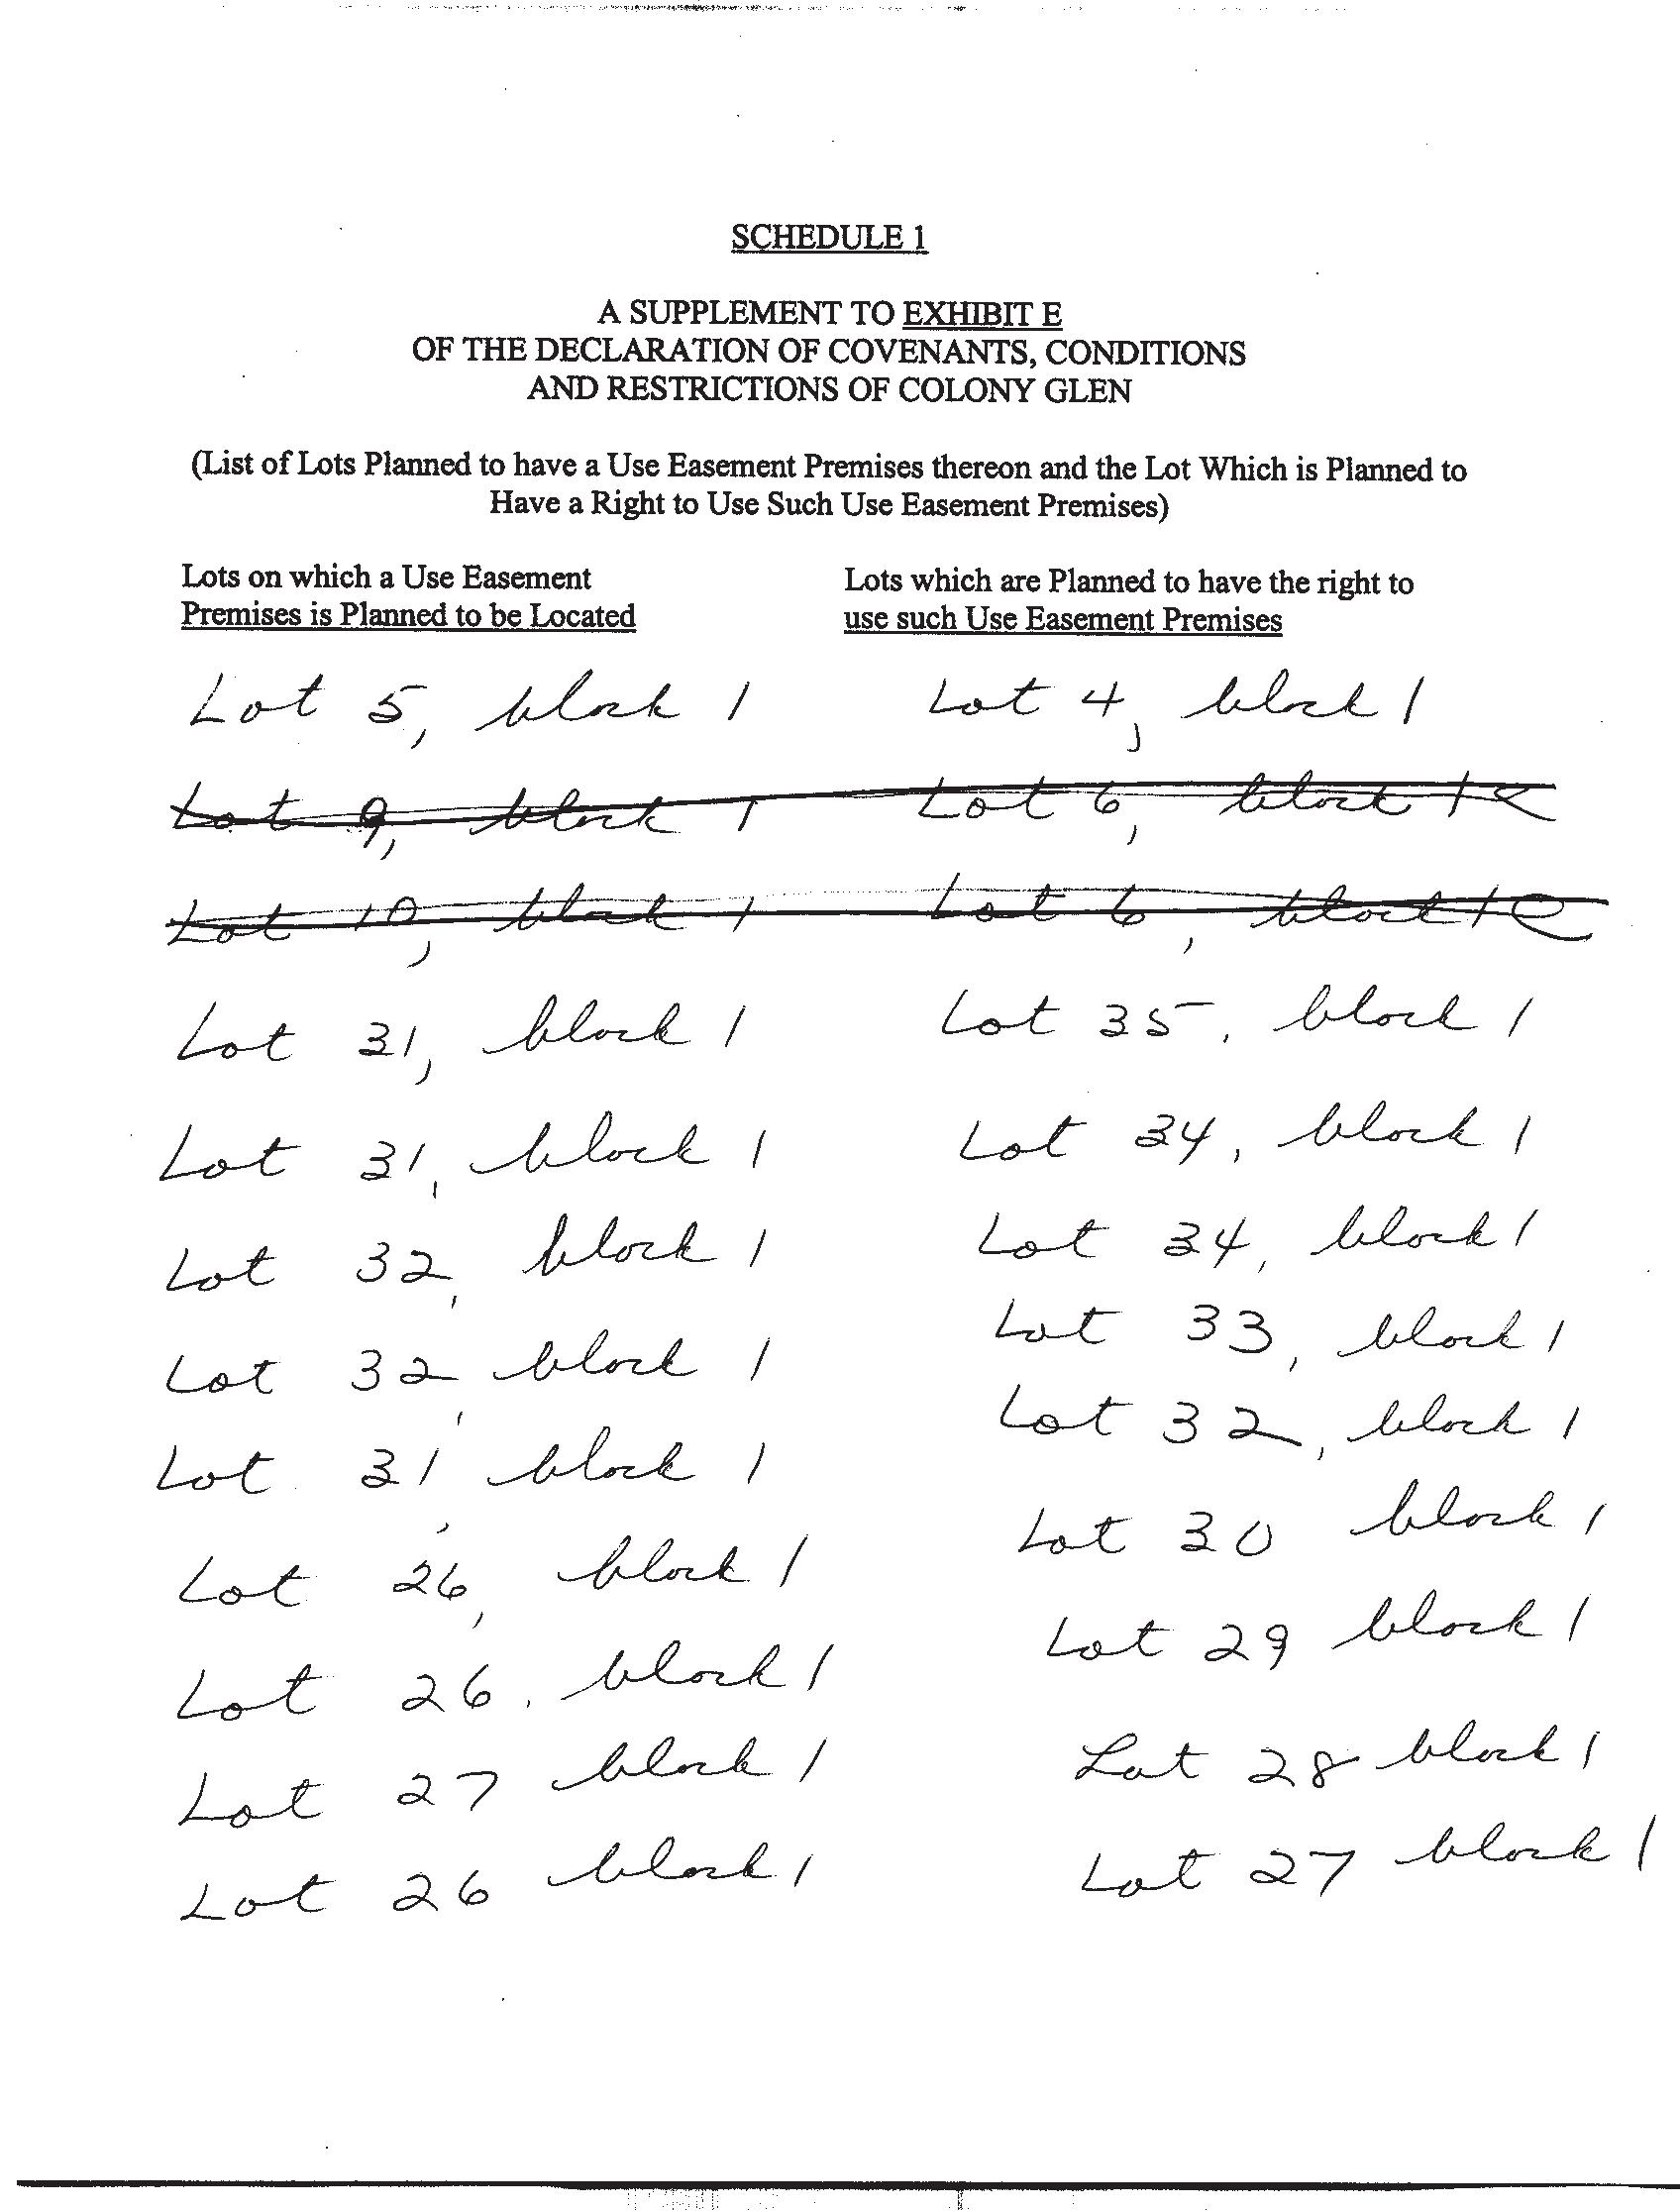 SCHEDULE 1
A SUPPLEMENT TO EXHIBIT E
OF THE DECLARATION OF COVENANTS, CONDITIONS
AND RESTRICTIONS OF COLONY GLEN
(List of Lots Planned to have a Use Easement Premises thereon and the Lot Which is Planned to
Have a Right to Use Such Use Easement Premises)
Lots on which a Use Easement Lots which are Planned to have the right to
Premises is Planned to be Located use such Use Easement Premises
Lot 5, block 1 Lot 4, block 1
Lot 9, block 1 Lot 6, block 1
Lot 10, block 1 Lot 6, block 1
Lot 31, block 1 Lot 35, block 1
Lot 31, block 1 Lot 34, block 1
Lot 32, block 1 Lot 34, block 1
Lot 32, block 1 Lot 33, block 1
Lot 31, block 1 Lot 32, block 1
Lot 26, block 1 Lot 30 block 1
Lot 26, block 1 Lot 29 block 1
Lot 27 block 1 Lot 28 block 1
Lot 26 block 1 Lot 27 block 1